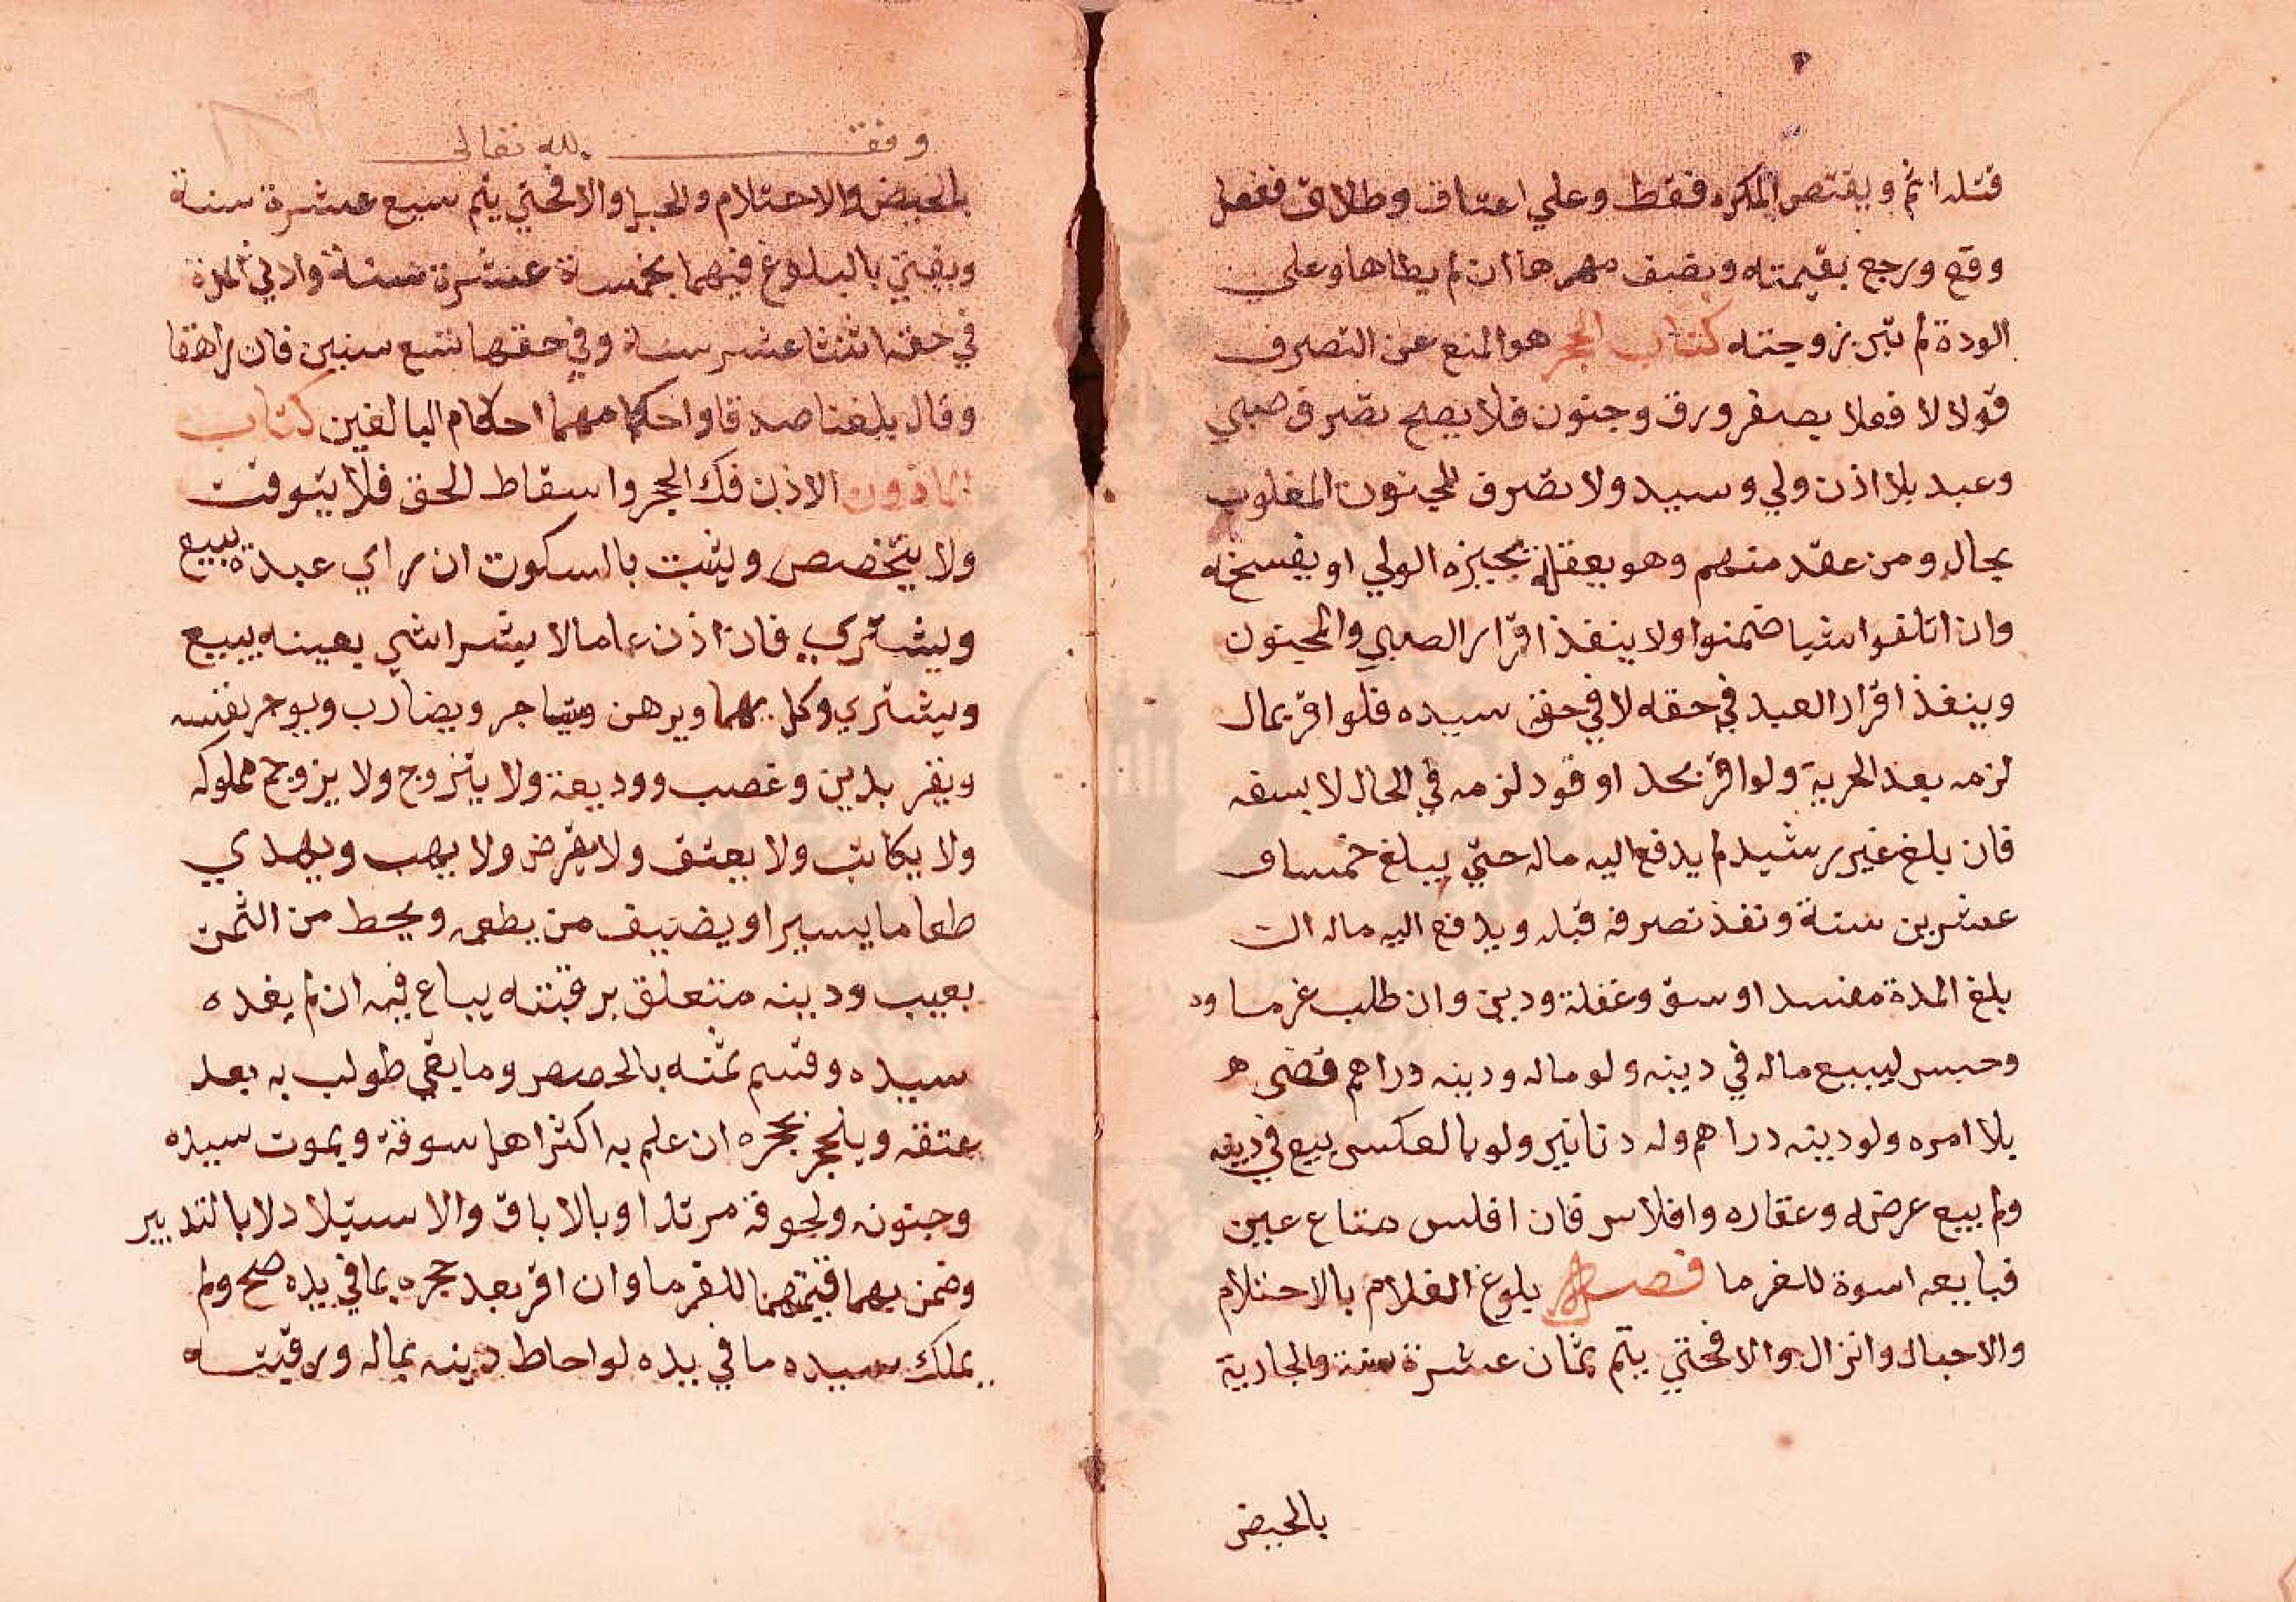 قتله اثم ويقتص المكره فقط وعلي اعتاق وطلاق ففعل
وقع ورجع بقيمته ونصف مهرها ان لم يطاها وعلي
الردة لم تبن زوجته كتاب الحجر هو المنع عن التصرف
قولا لا فعلا بصغر ورق وجنون فلا يصح تصرف صبي
وعبد بلا اذن ولي وسيد ولا تصرف المجنون المغلوب
بحال ومن عقد منهم وهو يعقله يجيزه الولي او يفسخه
وان اتلفوا شيا ضمنوا ولا ينفذ اقرار الصبي والمجنون
وينفذ اقرار العبد في حقه لا في حق سيده فلو اقر بمال
لزمه بعد الحرية ولو اقر بحد او قود لزمه في الحال لا بسفه
فان بلغ غير رشيد لم يدفع اليه ماله حتي يبلغ خمسا و
عشرين سنة ونفذ تصرفه قبله ويدفع اليه ماله ان
بلغ المدة مفسدا وفسق وغفلة ودين وان طلب غرماوه
وحبس ليبيع ماله في دينه ولو ماله ودينه دراهم قضى
بلا امره ولو دينه دراهم وله دنانير ولو بالعكس بيع في دينه
ولم يبع عرضه وعقاره وافلاس فان افلس مبتاع عين
فبايعه اسوة للغرما فصل بلوغ الغلام بالاحتلام
والاحبال وانزال والا فحتي يتم ثمان عشرة سنة والجارية
بالحيض
وقف لله تعالى
بالحيض والاحتلام والحبل والا فحتي يتم سبع عشرة سنة
ويفتي بالبلوغ فيهما بخمسة عشرة سنة وادني المدة
في حقه اثنتا عشر سنة وفي حقها تسع سنين فان راهقا
وقال بلغنا صدقا واحكامهما احكام البالغين كتاب
الماذون الاذن فك الحجر واسقاط الحق فلا يتوقت
ولا يتخصص ويثبت بالسكوت ان راي عبده يبيع
ويشتري فان اذن عاما لا بشرا شي بعينه يبيع
ويشتري وكل بهما ويرهن ويتاجر ويضارب ويوجر نفسه
ويقر بدين وغصب ووديعة ولا يتزوج ولا يزوج مملوكه
ولا يكاتب ولا يعتق ولا يقرض ولا يهب ويهدي
طعاما يسيرا ويضيف من يطعمه ويحط من الثمن
بعيب ودينه متعلق برقبته يباع فيه ان لم يفده
سيده وقسم ثمنه بالحصص وما بقي طولب به بعد
عتقه وينحجر بحجره ان علم به اكثر اهل سوقه ويموت سيده
وجنونه ولحوقه مرتدا وبالاباق والاستيلاد لا بالتدبير
وضمن بهما قيمتهما للغرما وان اقر بعد حجره بما في يده صح ولم
يملك سيده ما في يده لو احاط دينه بماله ورقبته